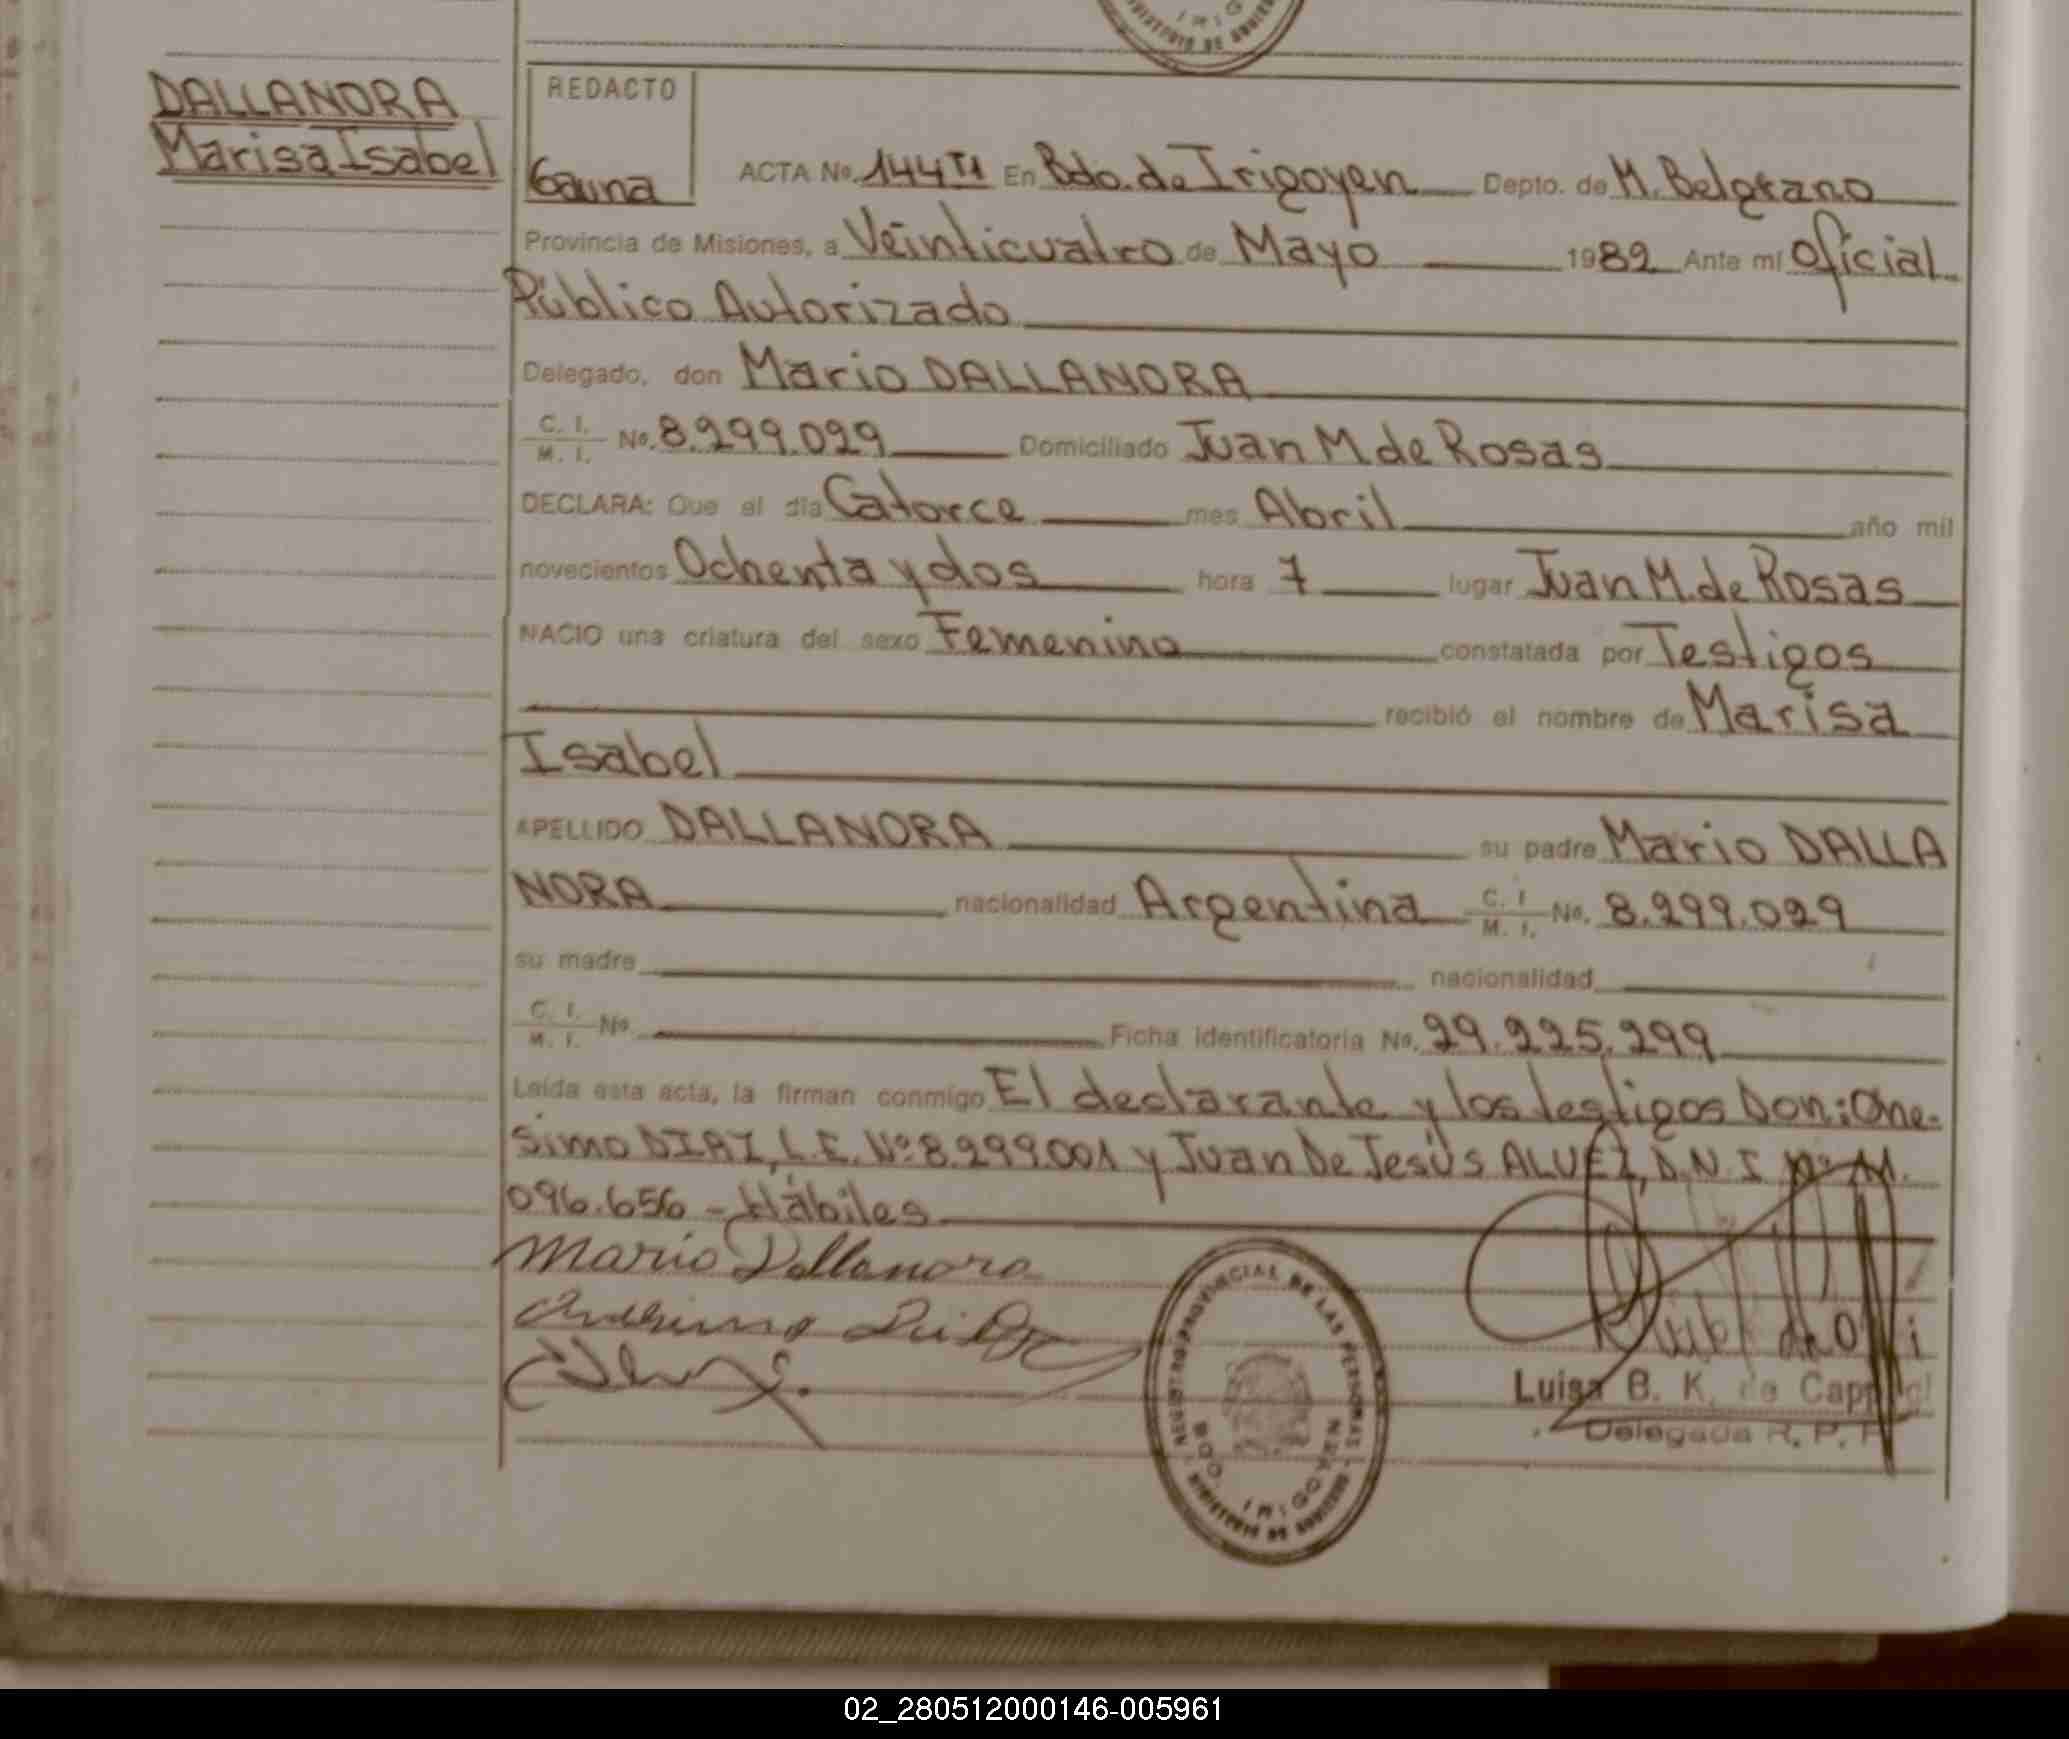 DALLANORA
Marisa Isabel
REDACTO
Gauna
ACTA No. 144 TI En Bdo. de Irigoyen Depto. de M. Belgrano
Provincia de Misiones, a Veinticuatro de Mayo 1982 Ante mi Oficial
Público Autorizado
Delegado, don Mario DALLANORA
C. I. / M. I. No. 8.299.029 Domiciliado Juan M de Rosas
DECLARA: Que el día Catorce mes Abril año mil
novecientos Ochenta y dos hora 7 lugar Juan M. de Rosas
NACIO una criatura del sexo Femenino constatada por Testigos
recibió el nombre de Marisa
Isabel
APELLIDO DALLANORA su padre Mario DALLA
NORA nacionalidad Argentina C. I / M. I. No. 8.299.029
su madre nacionalidad
C. I. / M. I. No. Ficha identificatoria No. 29.225.299
Leída esta acta, la firman conmigo El declarante y los testigos Don: One-
simo DIAZ, L.E. Nº 8.299.001 y Juan De Jesús ALVEZ, D.N.I. Nº 11.
096.656 - Hábiles
Mario Dallanora
REGISTRO PROVINCIAL DE LAS PERSONAS
MINISTERIO DE GOBIERNO
BDO. IRIGOYEN
Luisa B. K. de
Delegada R. P. P
02_280512000146-005961